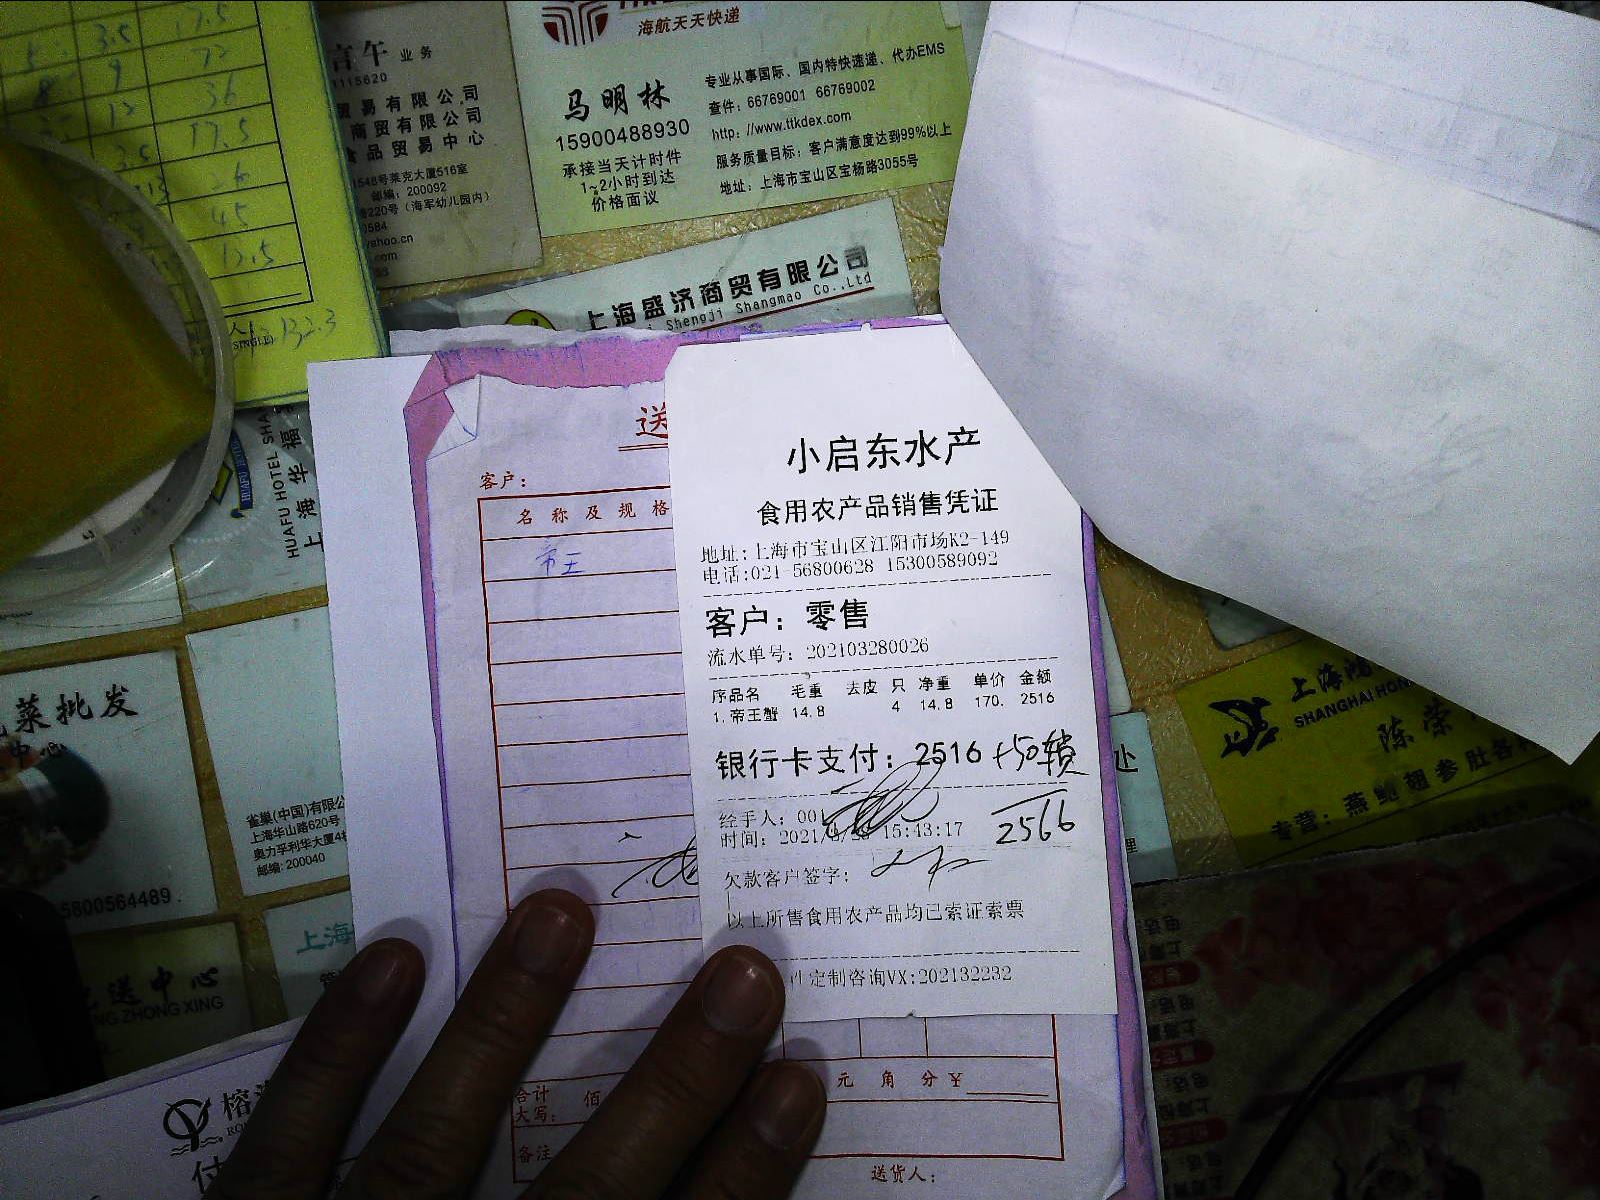 17.5
3.5
9 72
8 12 36
17.5
3.5
26
45
13.5
132.3
业务
1115620
贸易有限公司
商贸有限公司
食品贸易中心
1548号莱克大厦516室
邮编：200092
路220号（海军幼儿园内）
0584
yahoo.cn
.com
海航天天快递
马明林
15900488930
承接当天计时件
1~2小时到达
价格面议
专业从事国际、国内特快速递、代办EMS
查件：66769001 66769002
http: //www.ttkdex.com
服务质量目标：客户满意度达到99%以上
地址：上海市宝山区宝杨路3055号
上海盛济商贸有限公司
Shengji Shangmao Co.,Ltd
HUAFU HOTEL SHA
上海华福
送
客户：
名称及规格
帝王
元 角 分 ¥
合计
大写： 佰
备注
送货人：
小启东水产
食用农产品销售凭证
地址:上海市宝山区江阳市场K2-149
电话:021-56800628 15300589092
客户：零售
流水单号：202103280026
序品名 毛重 去皮 只 净重 单价 金额
1.帝王蟹 14.8 4 14.8 170. 2516
银行卡支付：2516 +50锁
经手人：001
时间：2021/3/28 15:43:17
2566
欠款客户签字：
以上所售食用农产品均已索证索票
件定制咨询VX:202132232
菜批发
中心
雀巢(中国)有限公
上海华山路620号
奥力孚利华大厦4
邮编: 200040
5800564489
上海
送中心
NG ZHONG XING
榕
付
处
理
上海
SHANGHAI HON
陈荣
专营：燕鲍翅参肚各